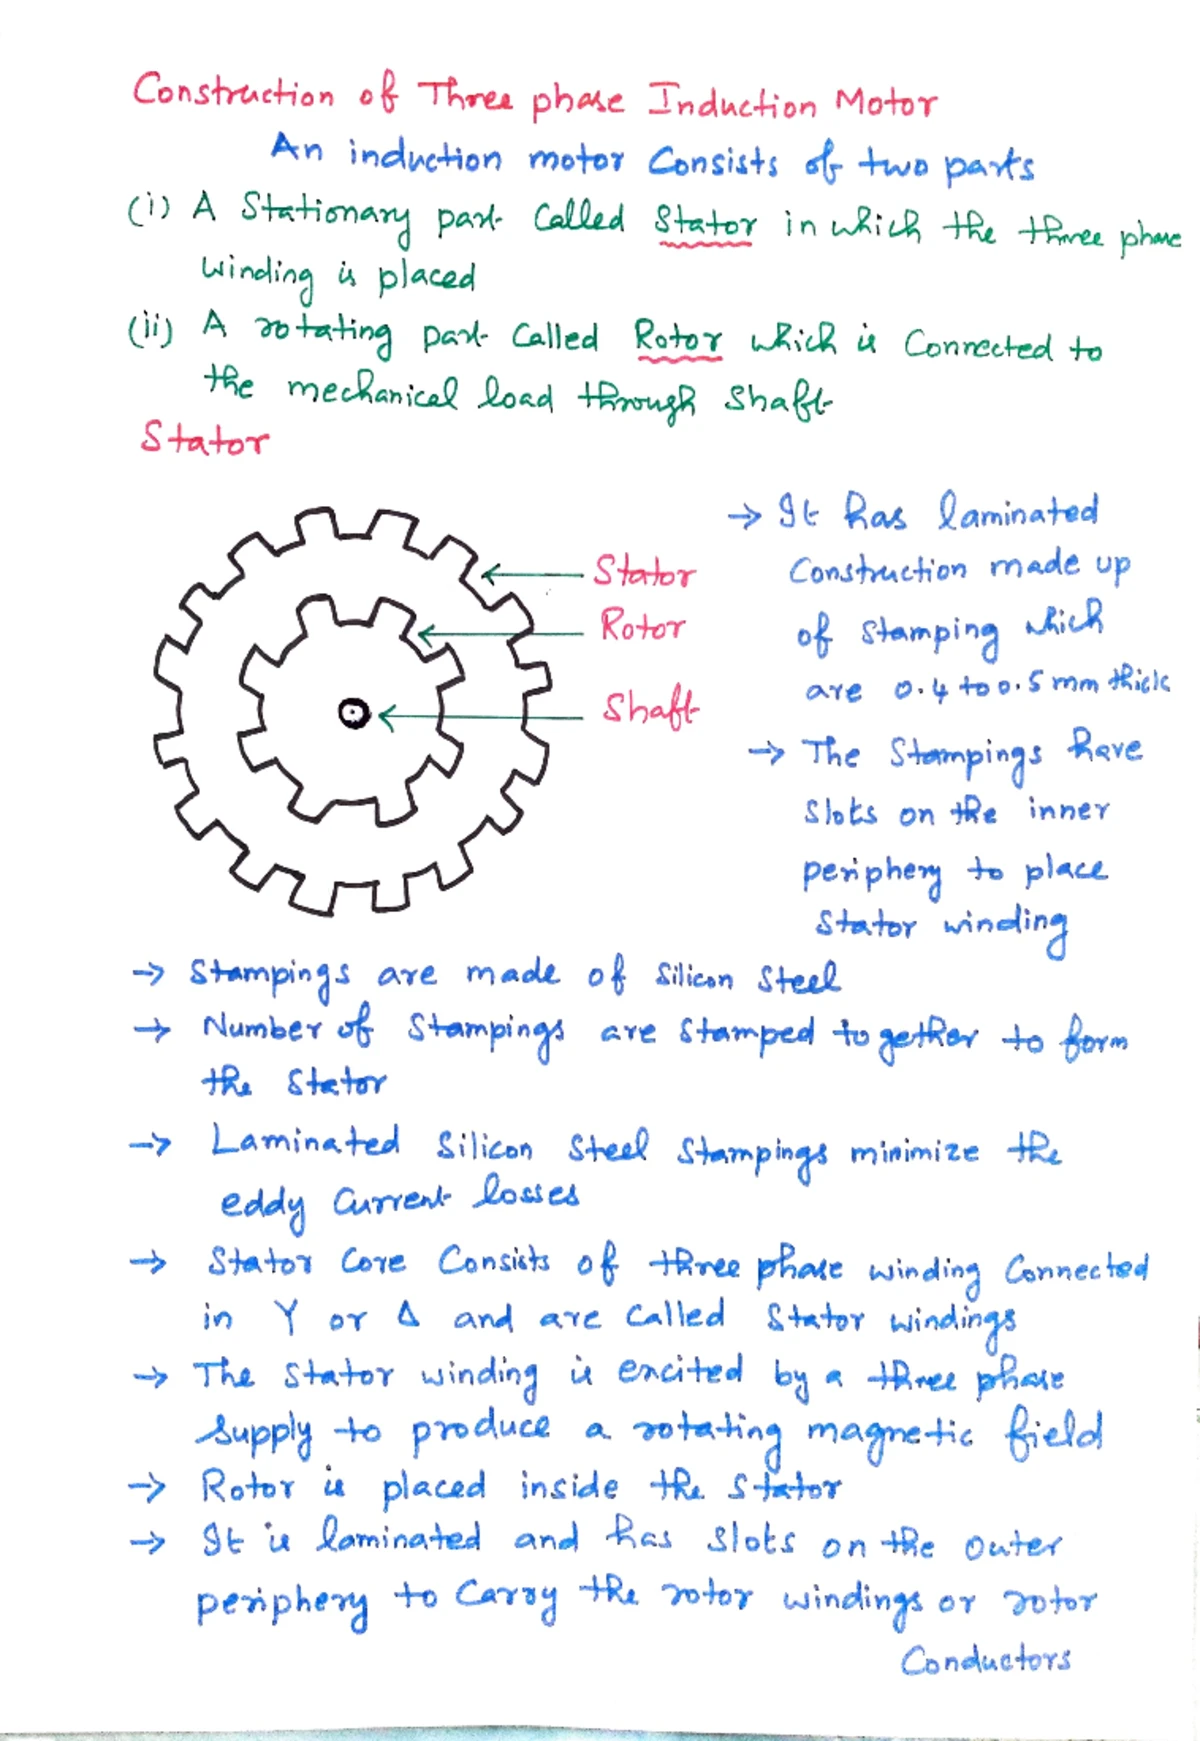 Construction of Three phase Induction Motor
An induction motor Consists of two parts
(i) A Stationary part Called Stator in which the three phase
winding is placed
(ii) A rotating part Called Rotor which is Connected to
the mechanical load through Shaft
Stator
Stator
Rotor
Shaft
→ It has laminated
Construction made up
of Stamping which
are 0.4 to 0.5 mm thick
→ The Stampings have
Slots on the inner
periphery to place
Stator winding
→ Stampings are made of Silicon Steel
→ Number of Stampings are Stamped together to form
the Stator
→ Laminated Silicon Steel Stampings minimize the
eddy Current losses
→ Stator Core Consists of three phase winding Connected
in Y or Δ and are Called Stator windings
→ The Stator winding is excited by a three phase
Supply to produce a rotating magnetic field
→ Rotor is placed inside the Stator
→ It is laminated and has Slots on the Outer
periphery to Carry the rotor windings or rotor
Conductors